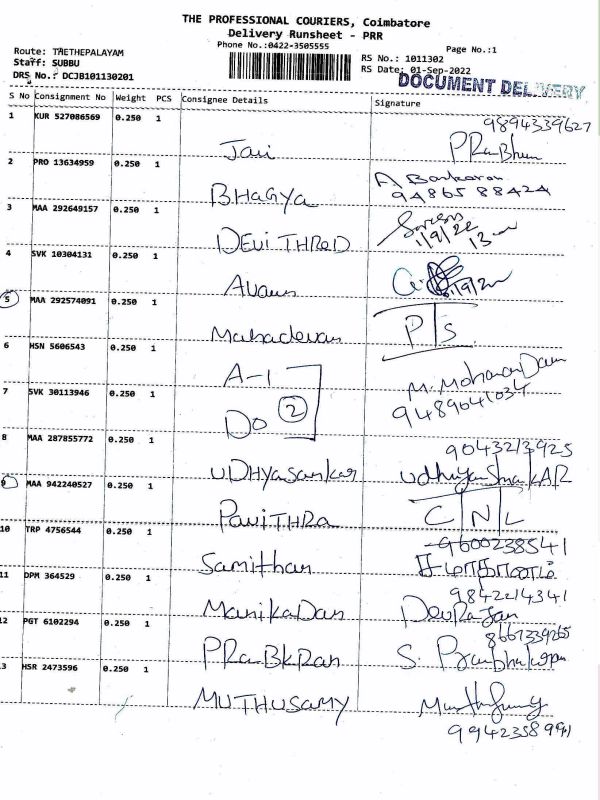 THE PROFESSIONAL COURIERS, Coimbatore
Delivery Runsheet - PRR
Phone No.:0422-3505555
Page No.:1
Route: TAETHEPALAYAM
Staff: SUBBU
DRS No.: DCJB101130201
RS No.: 1011302
RS Date: 01-Sep-2022
DOCUMENT DELIVERY
S No Consignment No Weight PCS Consignee Details Signature
9894339627
1 KUR 527086569 0.250 1
Jani PRaBhu
2 PRO 13634959 0.250 1
BHAGYA 94865 88424
3 MAA 292649157 0.250 1
DEVI THRED 1/9/22
4 SVK 10304131 0.250 1
5 MAA 292574091 0.250 1
Mahadevan P/S
6 HSN 5606543 0.250 1
A-1
7 SVK 30113946 0.250 1
M. Mohanan
9489041034
Do 2
8 MAA 287855772 0.250 1
9043213925
UDHyasankar
9 MAA 942240527 0.250 1
PaviTHRa C/N/L
10 TRP 4756544 0.250 1
9600238541
Samithan
11 DPM 364529 0.250 1
9842214341
ManikaDan DevRajan
12 PGT 6102294 0.250 1
8667339265
PRaBKRan S. Prabhakaran
13 HSR 2473596 0.250 1
MUTHUSAMY
9942358991